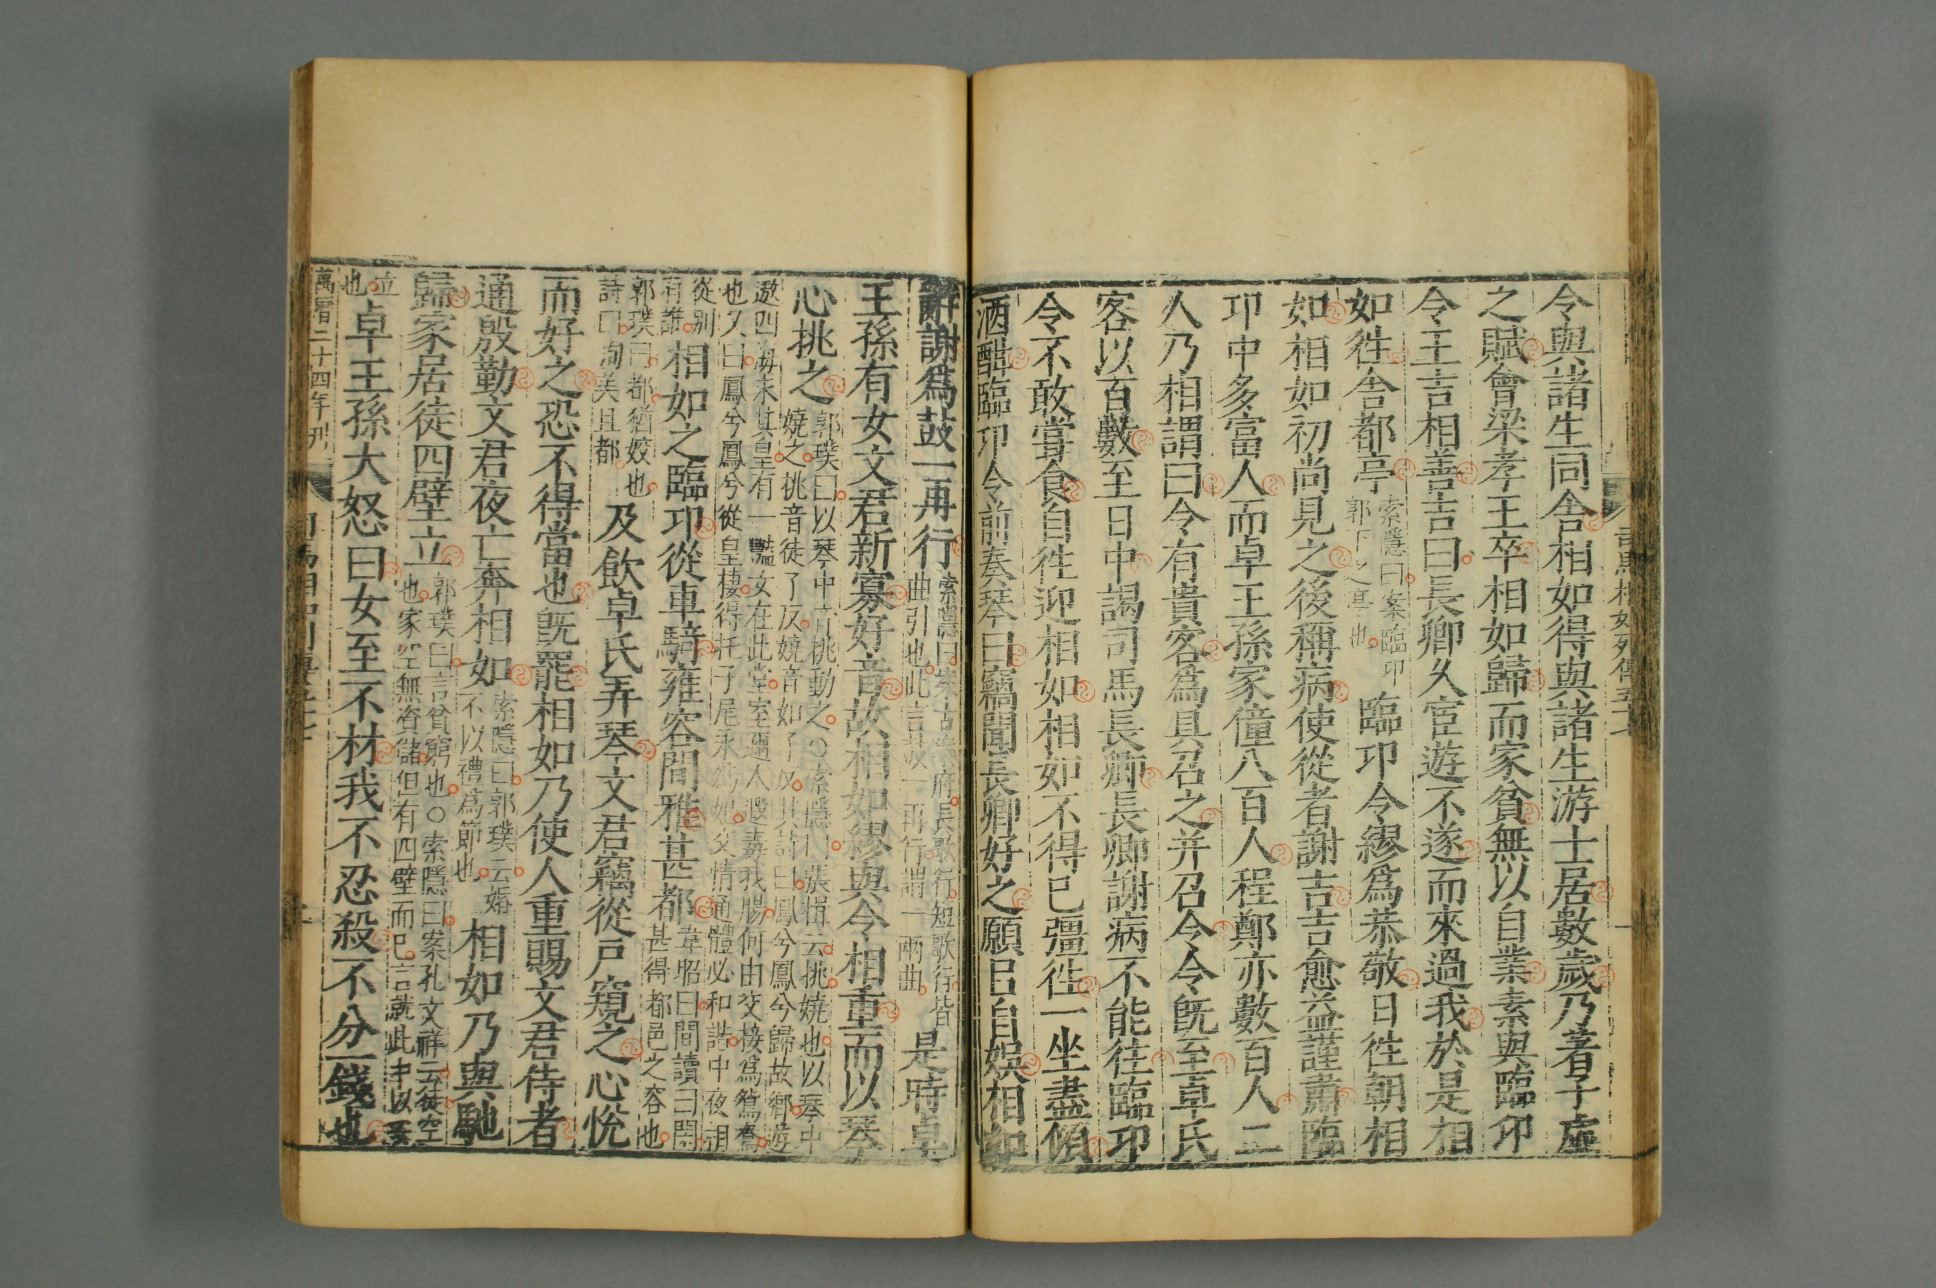 令與諸生同舍相如得與諸生游士居數歲乃著子虛
之賦會梁孝王卒相如歸而家貧無以自業素與臨卭
令王吉相善吉曰長卿久宦遊不遂而來過我於是相
如徃舍都亭索隱曰案臨卭郭下之亭也臨卭令繆爲恭敬日徃朝相
如相如初尚見之後稱病使從者謝吉吉愈益謹肅臨
卭中多富人而卓王孫家僮八百人程鄭亦數百人二
人乃相謂曰令有貴客爲具召之并召令令旣至卓氏
客以百數至日中謁司馬長卿長卿謝病不能往臨卭
令不敢嘗食自徃迎相如相如不得已彊徃一坐盡傾
酒酣臨卭令前奏琴曰竊聞長卿好之願以自娛相如
辭謝爲鼓一再行索隱曰案古樂府長歌行短歌行皆曲引也此言鼓一再行謂一兩曲是時卓
王孫有女文君新寡好音故相如繆與令相重而以琴
心挑之郭璞曰以琴中音挑動之○索隱曰張揖云挑嬈也以琴中嬈之挑音徒了反嬈音如了反其詩曰鳳兮鳳兮歸故鄉遊
遨四海求其皇有一豔女在此堂室邇人遐毒我腸何由交接爲鴛鴦也又曰鳳兮鳳兮從皇棲得托子尾永爲妃交情通體必和諧中夜相
從別有誰相如之臨卭從車騎雍容閒雅甚都韋昭曰閒讀曰閑甚得都邑之容也
郭璞曰都猶姣也詩曰洵美且都及飲卓氏弄琴文君竊從戶窺之心悅
而好之恐不得當也旣罷相如乃使人重賜文君侍者
通殷勤文君夜亡奔相如索隱曰郭璞云婚不以禮爲節也相如乃與馳
歸家居徒四壁立郭璞曰言貧窮也○索隱曰案孔文祥云徒空也家空無資儲但有四壁而已言就此中以安
立也卓王孫大怒曰女至不材我不忍殺不分一錢也
萬曆二十四年刊
司馬相如列傳五十七